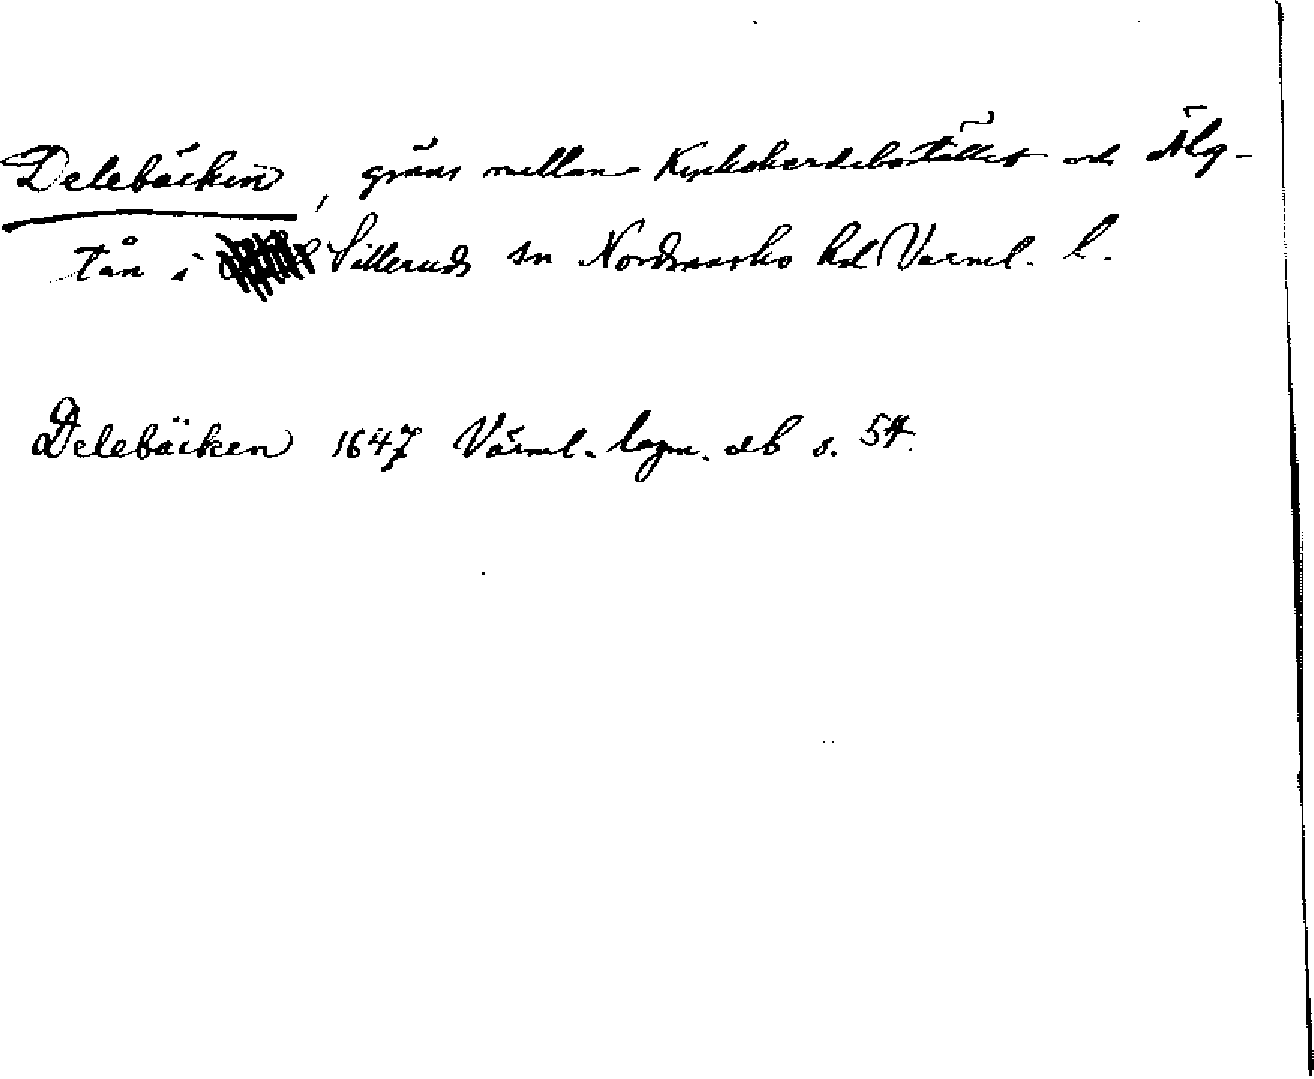 Delebäcken, gräns mellan Kyrkoherdebostället och Älg-
tån i Silleruds sn Nordmarks hd Värml. l.
Delebäcken 1647 Värml. lagm. db s. 54.